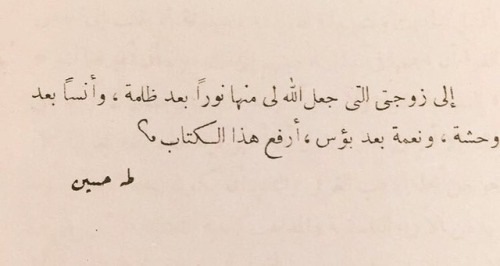 إلى زوجتى التى جعل الله لى منها نوراً بعد ظلمة ، وأنساً بعد
وحشة ، ونعمة بعد بؤس ، أرفع هذا الكتاب
طه حسين